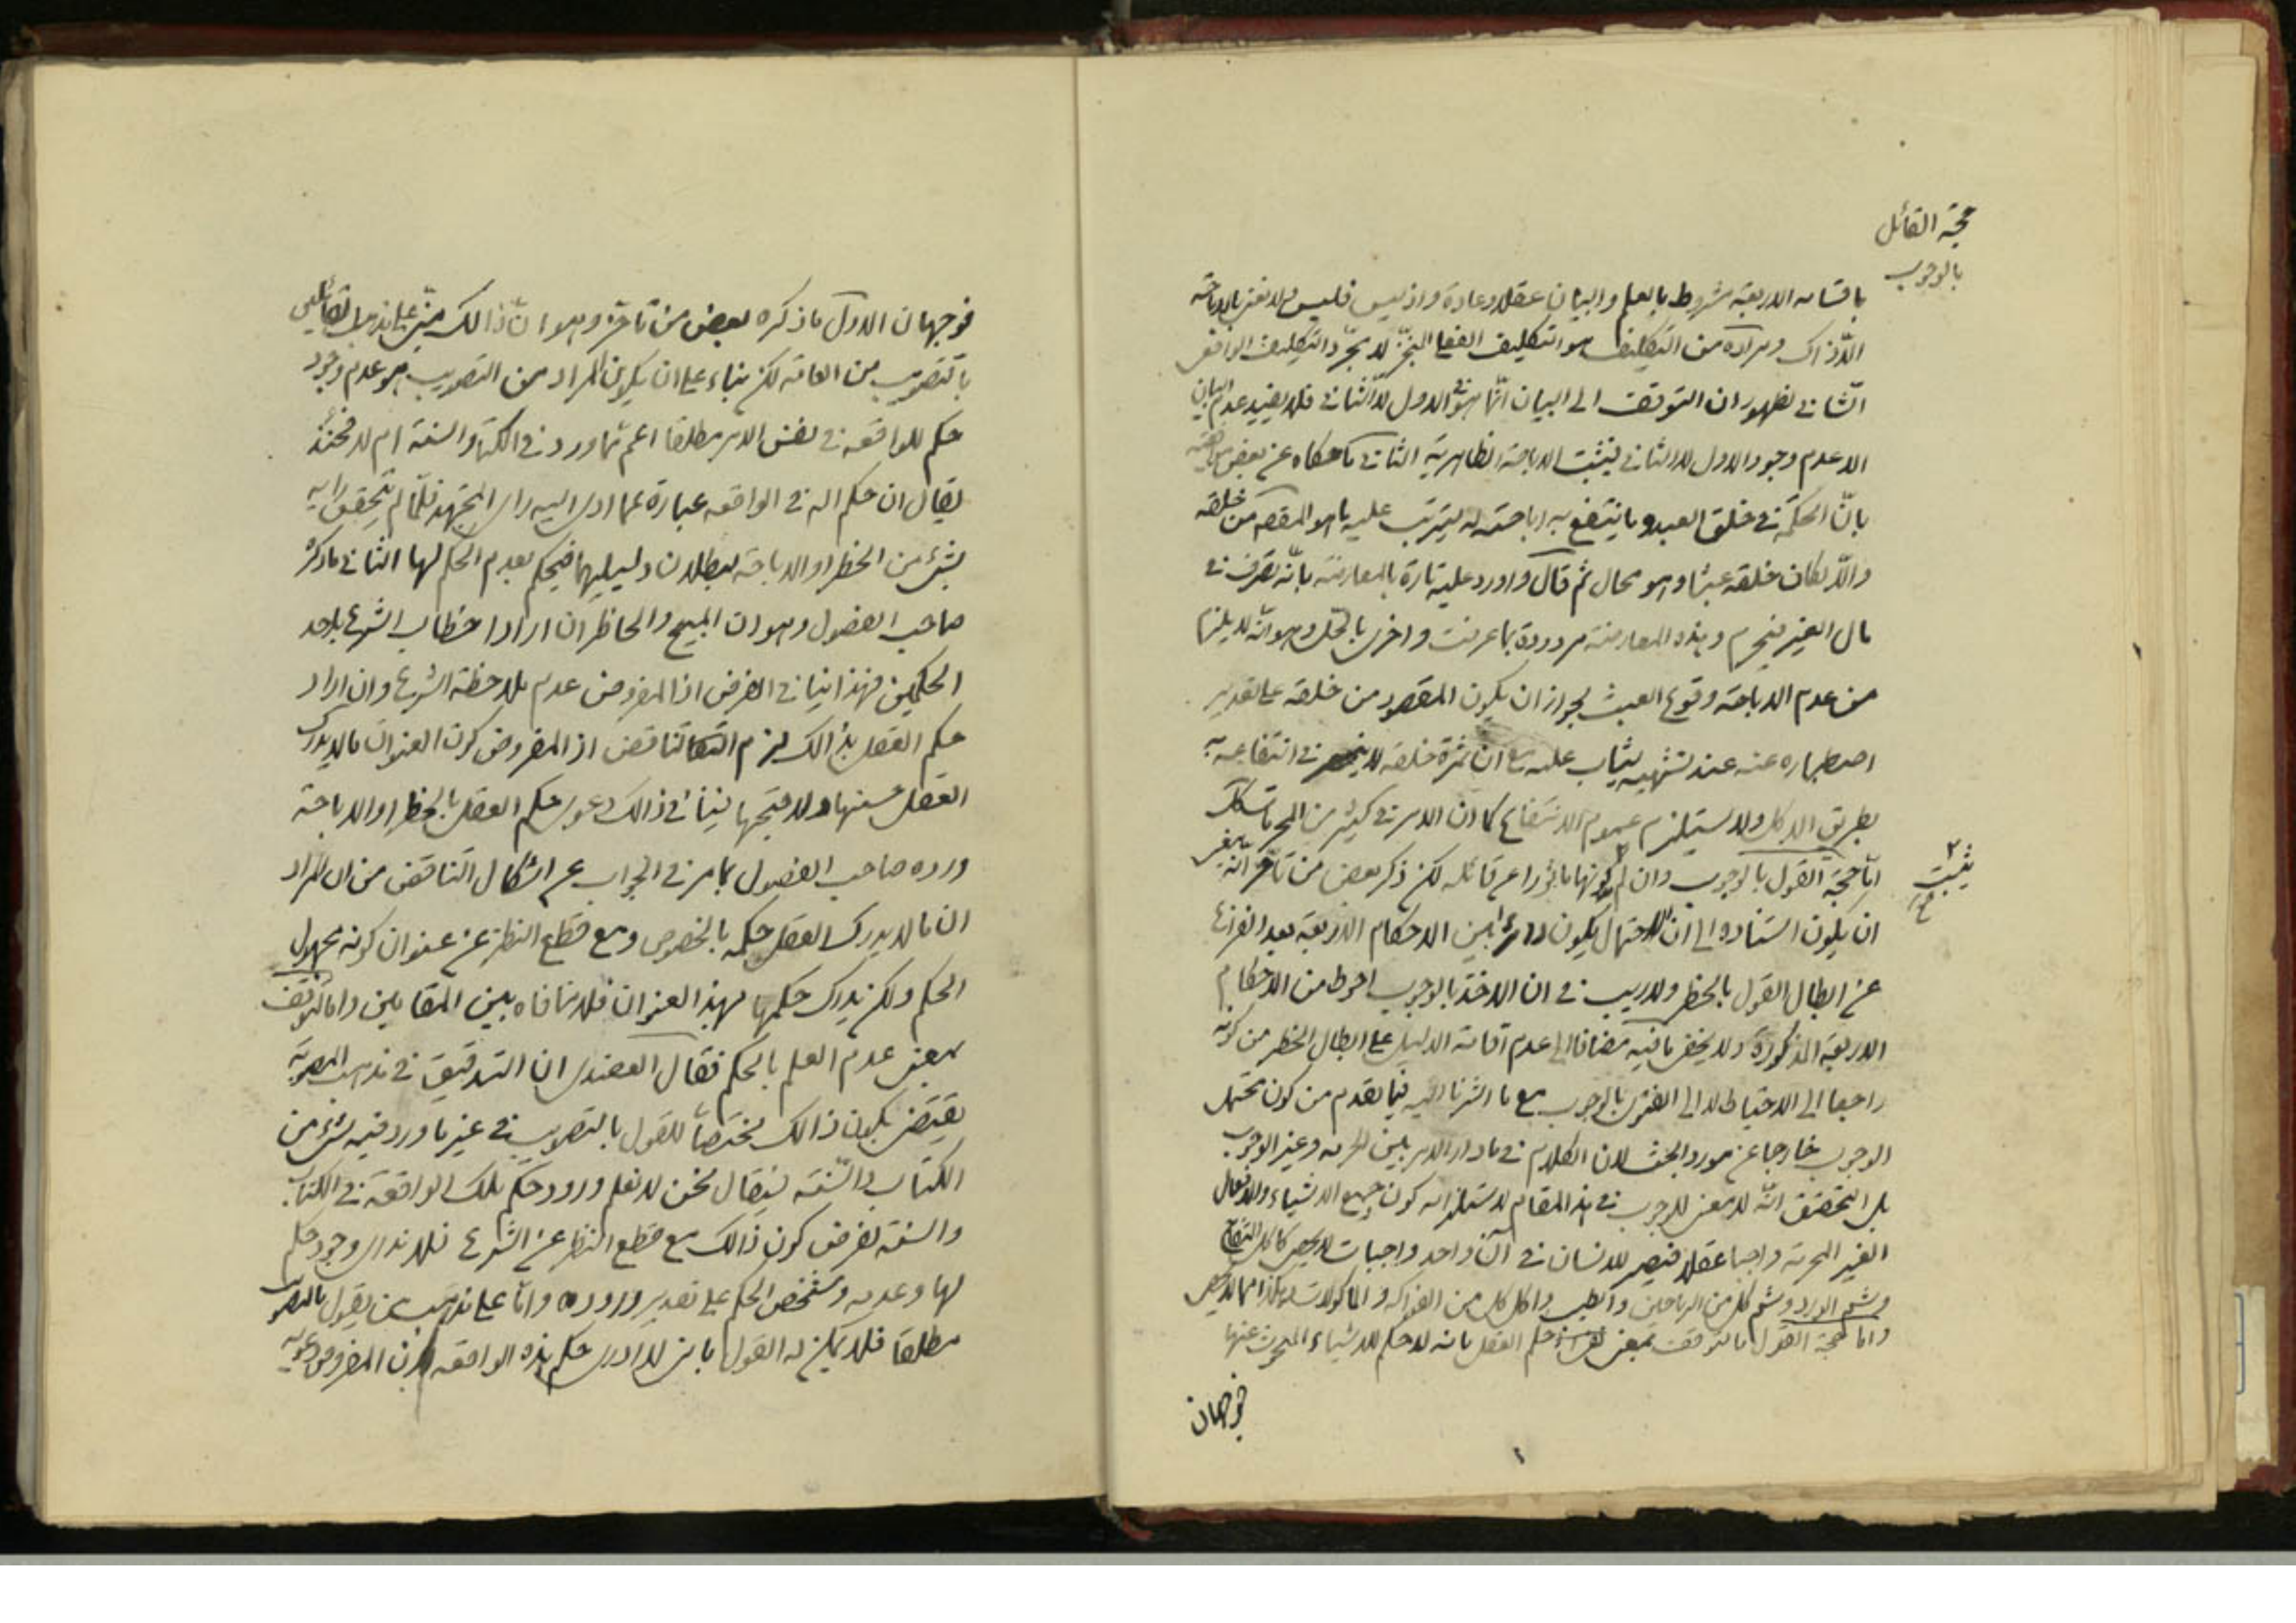 حجة القائل
بالوجوب
باقسامه الاربعة مشروط بالعلم والبيان عقلا وعادة واذ ليس فليس ولا نعنى بالاباحة
الا ذاك ومراده من التكليف هو التكليف الفعلى المنجز لا مجرد التكليف الواقعى
الثانى لظهور ان التوقف الى البيان انما هو فى الاول لا الثانى فلا يفيد عدم البيان
الا عدم وجود الاول لا الثانى فيثبت الاباحة الظاهرية الثانى ما حكاه عن بعض
بان الحكمة فى خلق العبد وما ينتفع به اباحته له ليترتب عليه ما هو المقصد من خلقه
والا لكان خلقه عبثا وهو محال ثم قال واورد عليه تارة بالمعارضة بانه تصرف فى
مال الغير فيحرم وهذه المعارضة مردودة بما عرفت واخرى بالحل وهو انه لا يلزم
من عدم الاباحة وقوع العبث لجواز ان يكون المقصود من خلقه على تقدير
اصطباره عنه عند تشهيه يثاب عليه مع ان ثمرة خلقه لا ينحصر فى انتفاعه به
بطريق الاكل ولا يستلزم عموم الانتفاع كما ان الامر فى كثير من المحرمات كك
اما حجة القول بالوجوب وان لم كونها ماثورا عن قائله لكن ذكر بعض من تاخر انه
يثبت
ان يكون استناده الى ان الاحتمال يكون دائرا بين الاحكام الاربعة بعد الفراغ
عن ابطال القول بالحظر ولا ريب فى ان الاخذ بالوجوب احوط من الاحكام
الاربعة المذكورة ولا يخفى ما فيه مضافا الى عدم اقامة الدليل على ابطال الحظر من كونه
راجعا الى الاحتياط لا الى الفتوى بالوجوب مع ما اشرنا اليه فيما تقدم من كون محتمل
الوجوب خارجا عن مورد البحث لان الكلام فى ما دار الامر بين الحرمة وغير الوجوب
بل التحقيق انه لا معنى للوجوب فى هذا المقام لاستلزامه كون جميع الاشياء والافعال
الغير المحرمة واجبا عقلا فيصير للانسان فى آن واحد واجبات لا يحصى كاكل التفاح
وشم الورد وشم كل من الرياحين والطيب واكل كل من الفواكه والماكولات وهكذا مما لا يحصى
واما حجة القول بالتوقف بمعنى حكم العقل بانه لا حكم للاشياء المبحوث عنها
فوجهان
فوجهان الاول ما ذكره بعض من تاخر وهو ان ذالك مبنى على مذهب القائلين
بالتصويب من العامة لكن بناء على ان يكون المراد من التصويب هو عدم وجود
حكم للواقعه فى نفس الامر مطلقا اعم مما ورد فى الكتاب والسنة ام لا فحينئذ
يقال ان حكم اله فى الواقعه عبارة عما ادى اليه راى المجتهد فلما لم يتحقق رايه
بشئ من الحظر او الاباحة لبطلان دليليهما فيحكم بعدم الحكم لها الثانى ما ذكره
صاحب الفصول وهو ان المبيح والحاظر ان ارادا خطاب الشرع باحد
الحكمين فهذا ينافى الفرض اذ المفروض عدم ملاحظة الشرع وان ارادا
حكم العقل بذالك لزم التناقض اذ المفروض كون العنوان ما لا يدرك
العقل حسنها ولا قبحها ينافى ذالك دعوى حكم العقل بالحظر او الاباحة
ورده صاحب الفصول بما مر فى الجواب عن اشكال التناقض من ان المراد
ان ما لا يدرك العقل حكمه بالخصوص ومع قطع النظر عن عنوان كونه مجهول
الحكم ولكن يدرك حكمها بهذا العنوان فلا منافاه بين المقامين واما التوقف
بمعنى عدم العلم بالحكم فقال العضدى ان التدقيق فى مذهب المصوبة
يقتضى بكون ذالك مختصا للقول بالتصويب فى غير ما ورد فيه شئ من
الكتاب والسنة فيقال نحن لا نعلم ورود حكم تلك الواقعة فى الكتاب
والسنة لفرض كون ذالك مع قطع النظر عن الشرع فلا ندرى وجود حكم
لها وعدمه وشخص الحكم على تقدير وروده واما على مذهب من يقول بالتصويب
مطلقا فلا يمكن له القول بانى لا ادرى حكم هذه الواقعه لان المفروض